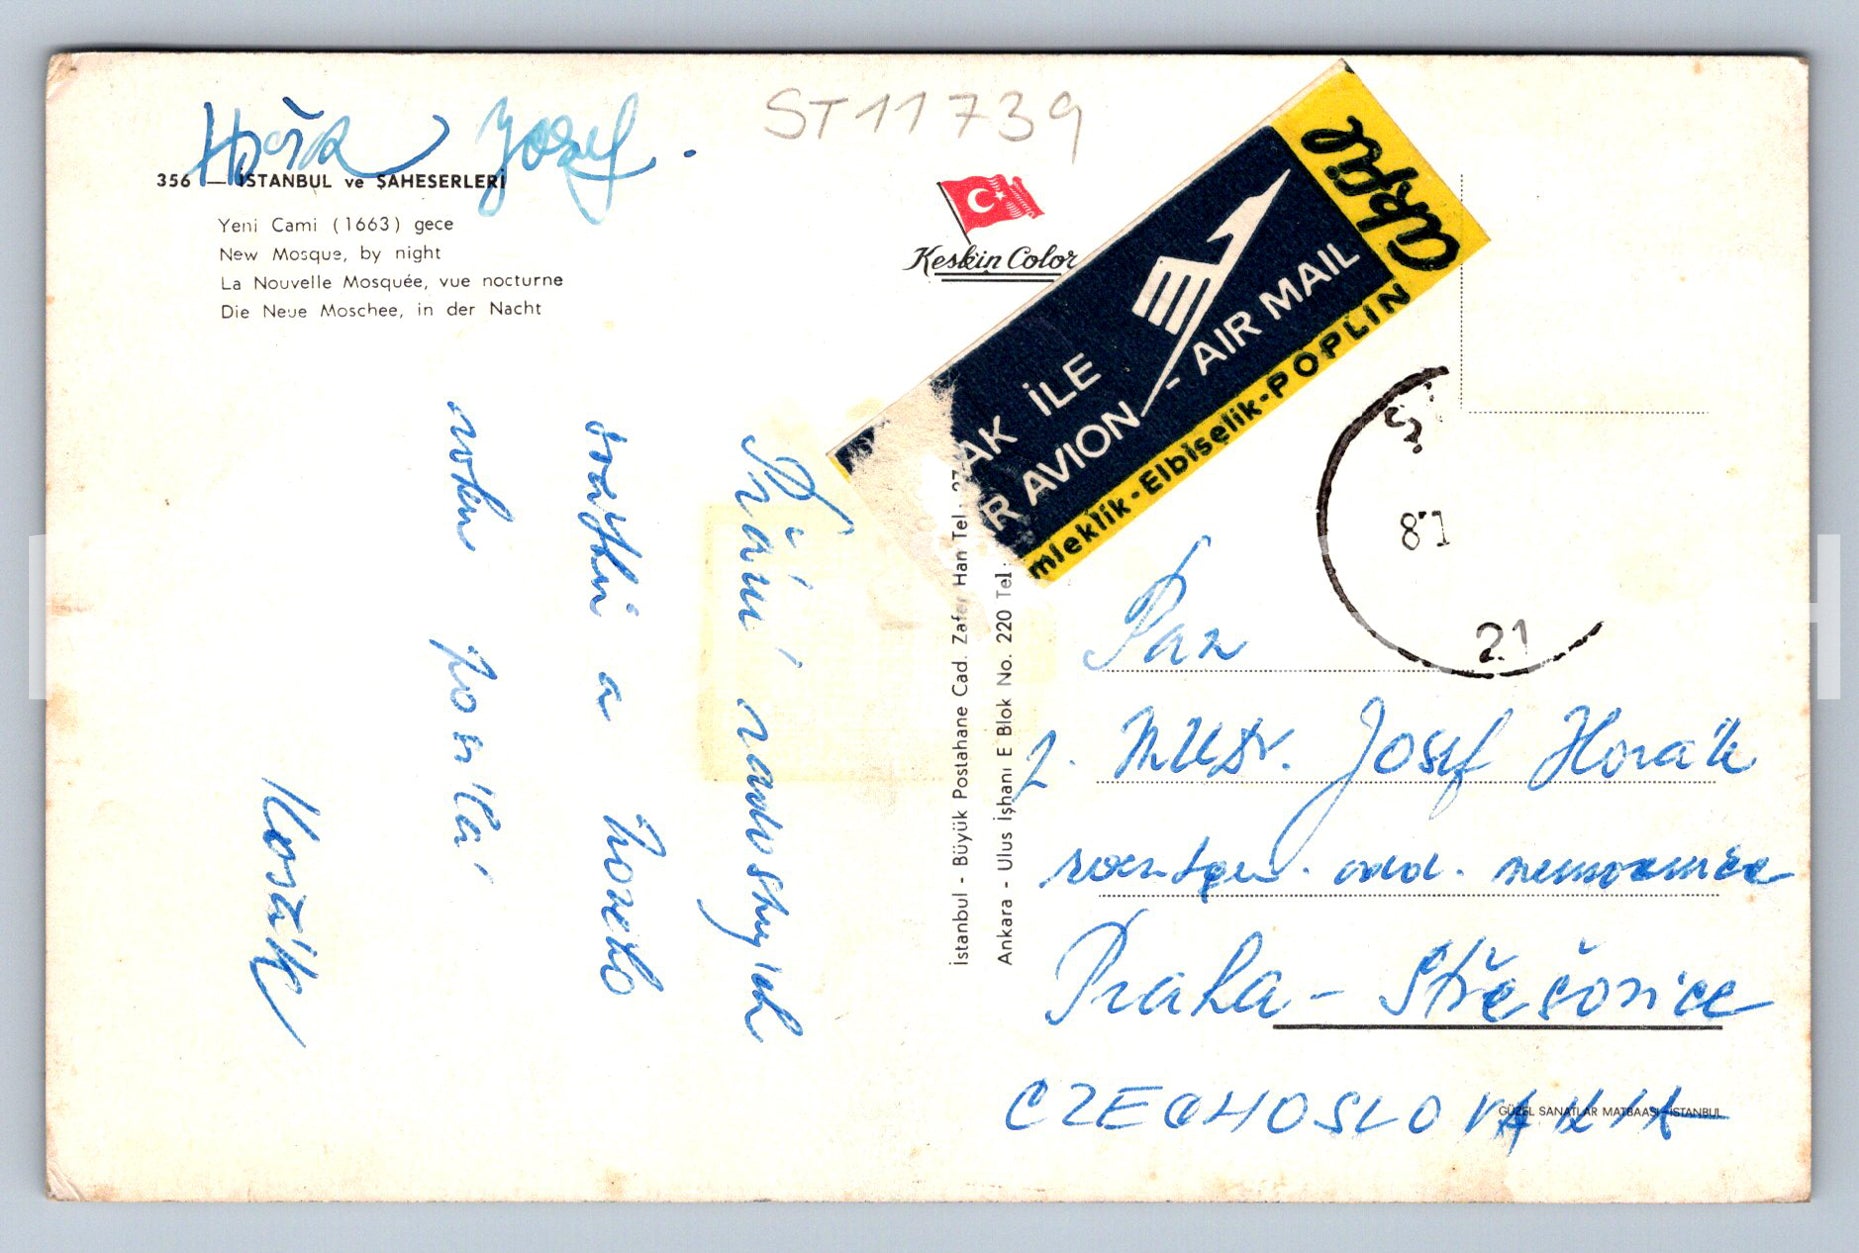 Josef.
ST11739
356 — İSTANBUL ve ŞAHESERLERİ
Yeni Cami (1663) gece
New Mosque, by night
La Nouvelle Mosquée, vue nocturne
Die Neue Moschee, in der Nacht
Keskin Color
AK İLE
R AVION - AIR MAIL
akfil
mleklik-Elbiselik-POPLİN
İstanbul - Büyük Postahane Cad. Zafer Han Tel: 27
Ankara - Ulus İşhanı E Blok No. 220 Tel:
Přání radostných
a
roku posílá
Horák
8.1
21
Pan
MUDr. Josef Horák
roentgen. odd. nemocnice
Praha - Střešovice
CZECHOSLOVAKIA
GÜZEL SANATLAR MATBAASI-İSTANBUL